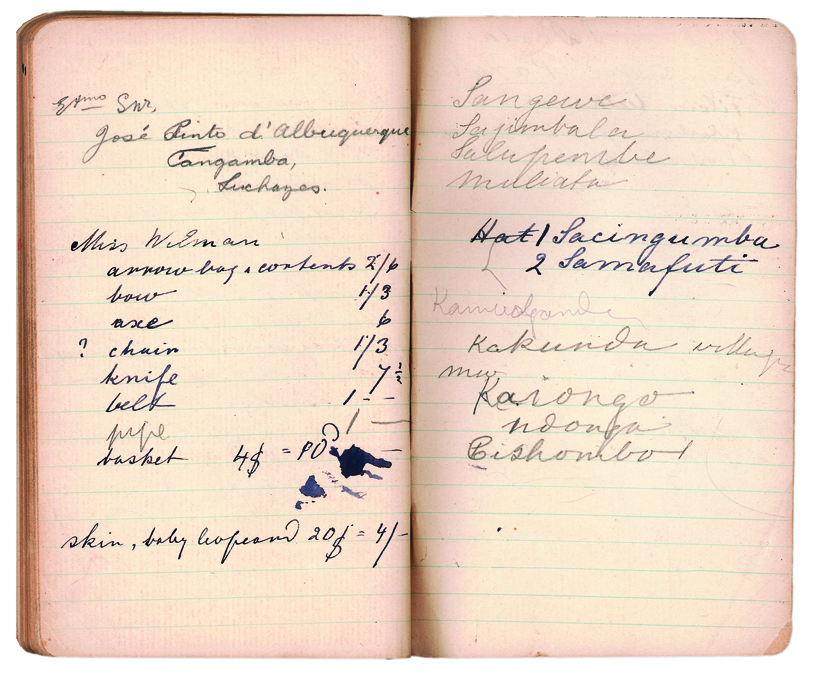 Exmo Snr,
José Pinto d'Albuquerque
Cangamba,
Luchazes.
Miss Wilman
arrow bag & contents 2/6
bow 1/3
axe 6
? chain 1/3
knife 7 ½
belt 1 - -
pipe 1 —
basket 4$ = PO
skin, baby leopard 20$ = 4/-
Sangewe
Sajimbala
Salupembe
Muliata
Hat 1 Sacingumba
2 Samafuti
Kakunda village
mu
Kaiongo
ndonga
Cishombo